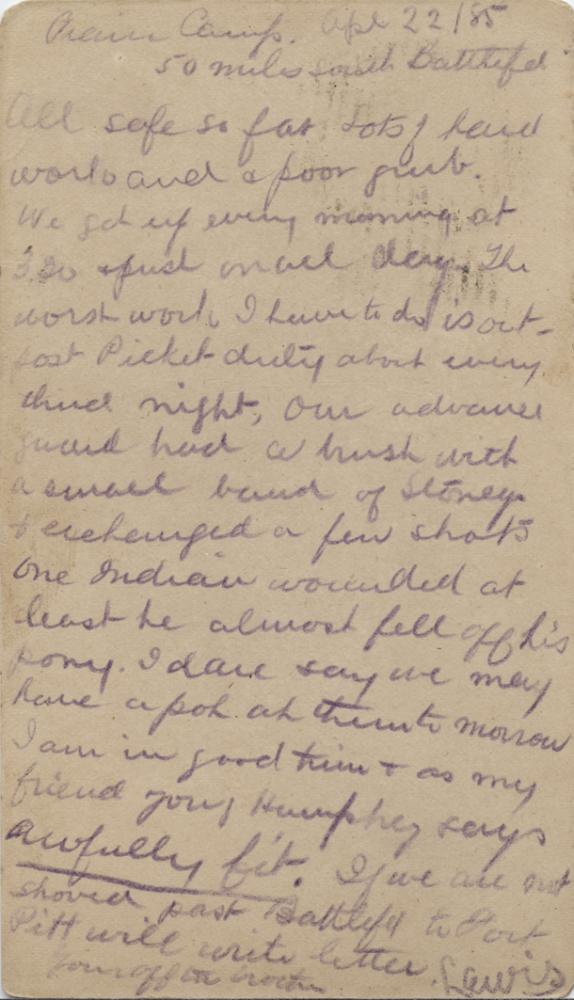 Prairie Camp. Apl 22/85
50 miles south Battlefd
All safe so far Lots of hard
work and a poor grub.
We get up every morning at
3.30 & push on all day. The
worst work I have to do is out-
post Picket duty about every
third night, Our advance
guard had a brush with
a small band of Stoneys
& exchanged a few shots
one Indian wounded at
least he almost fell off his
pony. I dare say we may
have a pot at them to morrow
I am in good trim & as my
friend young Humphrey says
awfully fit. If we are not
shoved past Battlefd to Fort
Pitt will write letter. Lewis
Your aff